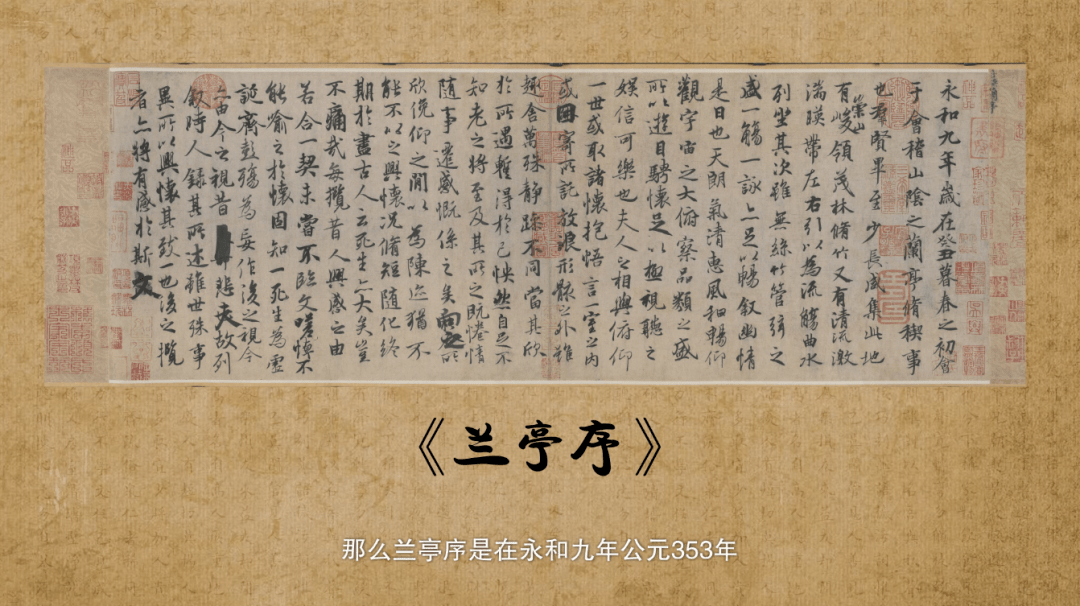 永和九年歲在癸丑暮春之初會
于會稽山陰之蘭亭脩稧事
也羣賢畢至少長咸集此地
有崇山峻領茂林脩竹又有清流激
湍暎帶左右引以為流觴曲水
列坐其次雖無絲竹管弦之
盛一觴一詠亦足以暢敘幽情
是日也天朗氣清惠風和暢仰
觀宇宙之大俯察品類之盛
所以遊目騁懷足以極視聽之
娛信可樂也夫人之相與俯仰
一世或取諸懷抱悟言一室之內
或因寄所託放浪形骸之外雖
趣舍萬殊靜躁不同當其欣
於所遇暫得於己怏然自足不
知老之將至及其所之既惓情
隨事遷感慨係之矣向之所
欣俛仰之閒以為陳迹猶不
能不以之興懷況脩短隨化終
期於盡古人云死生亦大矣豈
不痛哉每攬昔人興感之由
若合一契未嘗不臨文嗟悼不
能喻之於懷固知一死生為虛
誕齊彭殤為妄作後之視今
亦由今之視昔悲夫故列
敘時人錄其所述雖世殊事
異所以興懷其致一也後之攬
者亦將有感於斯文
《兰亭序》
那么兰亭序是在永和九年公元353年